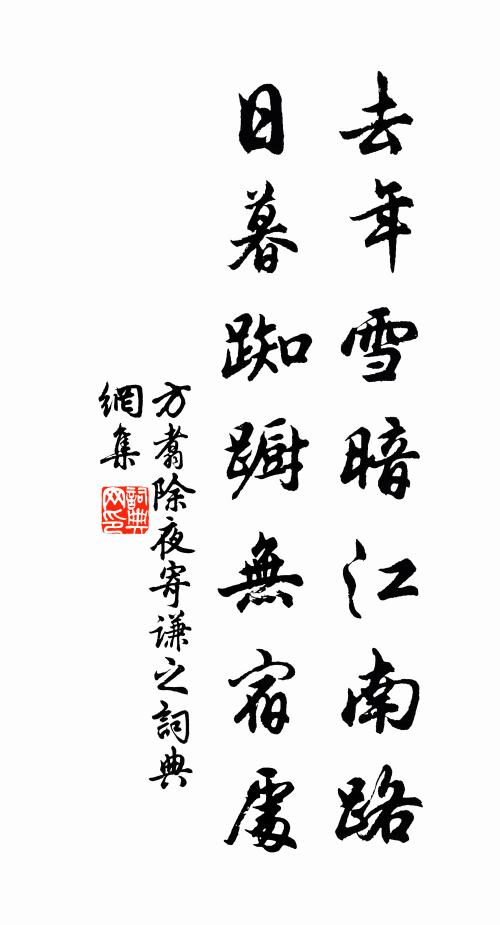 去年雪暗江南路
日暮踟躕無宿處
方翥除夜寄謙之詞典
網集
詞典網印